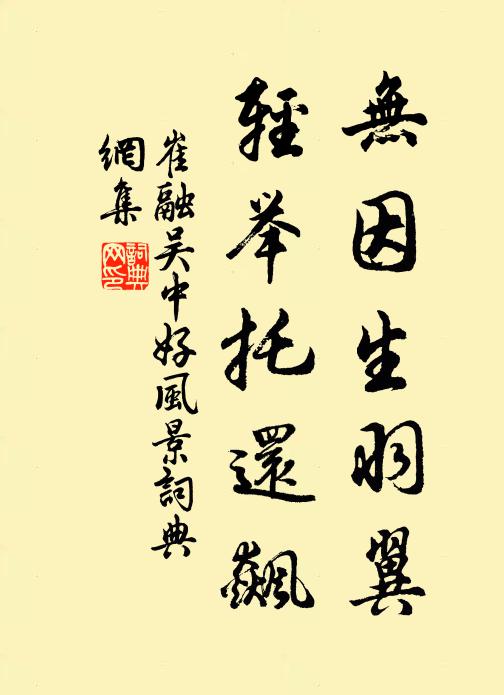 無因生羽翼
輕举托還飆
崔融吴中好風景詞典
網集
詞典网印